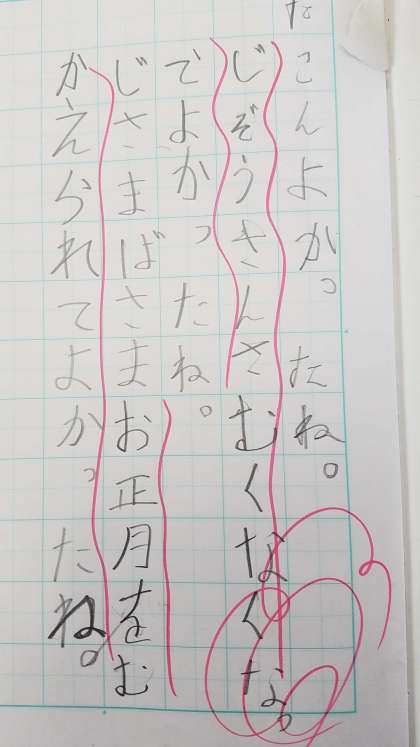 こんよかったね。
じぞうさんさむくなくなっ
でよかったね。
じさまばさまお正月をむ
かえられてよかったね。